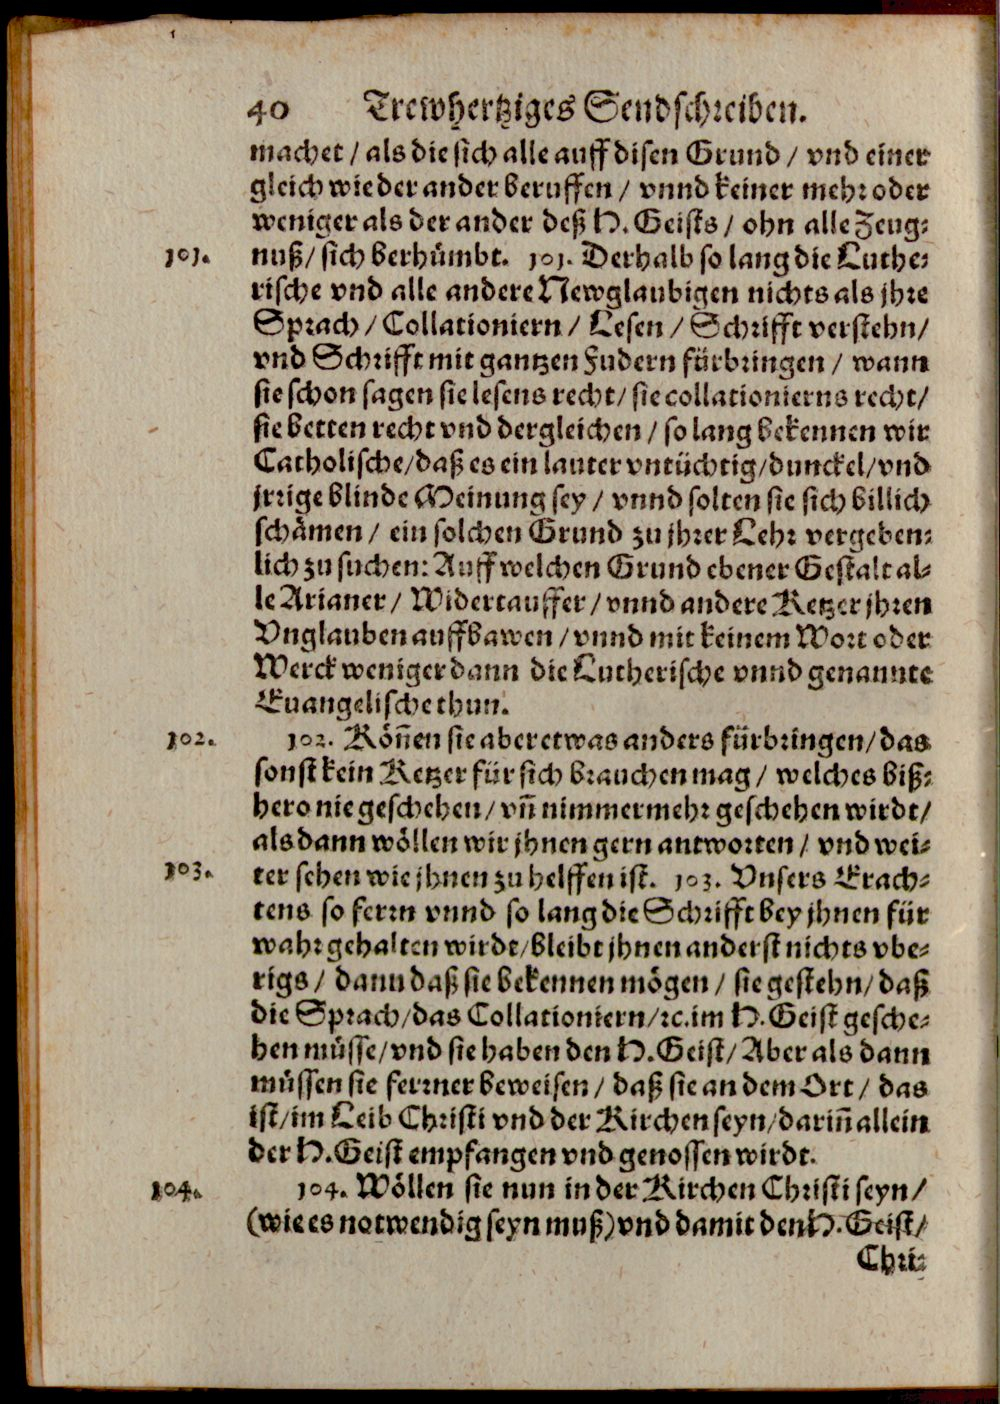 40 Trewhertziges Sendschreiben.
machet / als die sich alle auff disen Grund / vnd einer
gleich wie der ander beruffen / vnnd keiner mehr oder
weniger als der ander deß H. Geists / ohn alle Zeug-
101. nuß / sich berhümbt. 101. Derhalb so lang die Luthe-
rische vnd alle andere Newglaubigen nichts als jhre
Sprach / Collationiern / Lesen / Schrifft verstehn /
vnd Schrifft mit gantzen Fudern fürbringen / wann
sie schon sagen sie lesens recht / sie collationierns recht /
sie betten recht vnd dergleichen / so lang bekennen wir
Catholische / daß es ein lauter vntüchtig / dunckel / vnd
jrrige blinde Meinung sey / vnnd solten sie sich billich
schämen / ein solchen Grund zu jhrer Lehr vergeben-
lich zu suchen: Auff welchen Grund ebener Gestalt al-
le Arianer / Widertauffer / vnnd andere Ketzer jhren
Vnglauben auffbawen / vnnd mit keinem Wort oder
Werck weniger dann die Lutherische vnnd genannte
Euangelische thun.
102. 102. Köñen sie aber etwas anders fürbringen / das
sonst kein Ketzer für sich brauchen mag / welches biß-
hero nie geschehen / vñ nimmermehr geschehen wirdt /
als dann wöllen wir jhnen gern antworten / vnd wei-
103. ter sehen wie jhnen zu helffen ist. 103. Vnsers Erach-
tens so ferrn vnnd so lang die Schrifft bey jhnen für
wahr gehalten wirdt / bleibt jhnen anderst nichts vbe-
rigs / dann daß sie bekennen mögen / sie gestehn / daß
die Sprach / das Collationiern / ꝛc. im H. Geist gesche-
hen müsse / vnd sie haben den H. Geist / Aber als dann
müssen sie ferrner beweisen / daß sie an dem Ort / das
ist / im Leib Christi vnd der Kirchen seyn / dariñ allein
der H. Geist empfangen vnd genossen wirdt.
104. 104. Wöllen sie nun in der Kirchen Christi seyn /
(wie es notwendig seyn muß) vnd damit den H. Geist /
Chri-